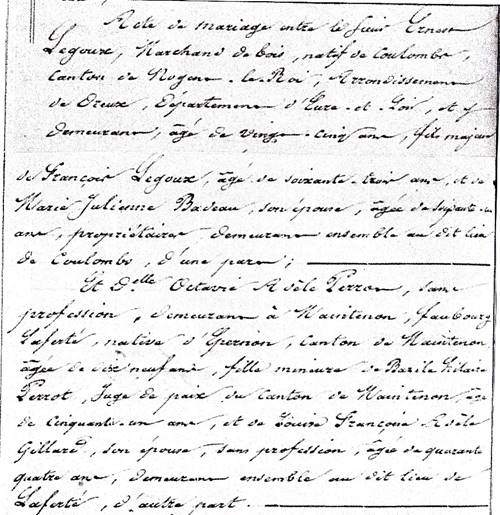 Acte de mariage entre le sieur Ernest
Legoux, Marchand de bois, natif de Coulombs,
Canton de Nogent-le-Roi, Arrondissement
de Dreux, Département d'Eure-et-Loir, et y
demeurant, âgé de vingt-cinq ans, fils majeur
de François Legoux, âgé de soixante-trois ans, et de
Marie Julienne Badeau, son épouse, âgée de
ans, propriétaires, demeurant ensemble au dit lieu
de Coulombs, d'une part;
Et Delle Octavie Adèle Perrot, sans
profession, demeurant à Maintenon, faubourg
Laferté, native d'Epernon, Canton de Maintenon
âgée de dix neuf ans, fille mineure de Bazile Hilaire
Perrot, Juge de paix du Canton de Maintenon, âgé
de Cinquante-un ans, et de Louise Françoise Adèle
Gillard, son épouse, sans profession, âgée de quarante
quatre ans, demeurant ensemble au dit lieu de
Laferté, d'autre part.